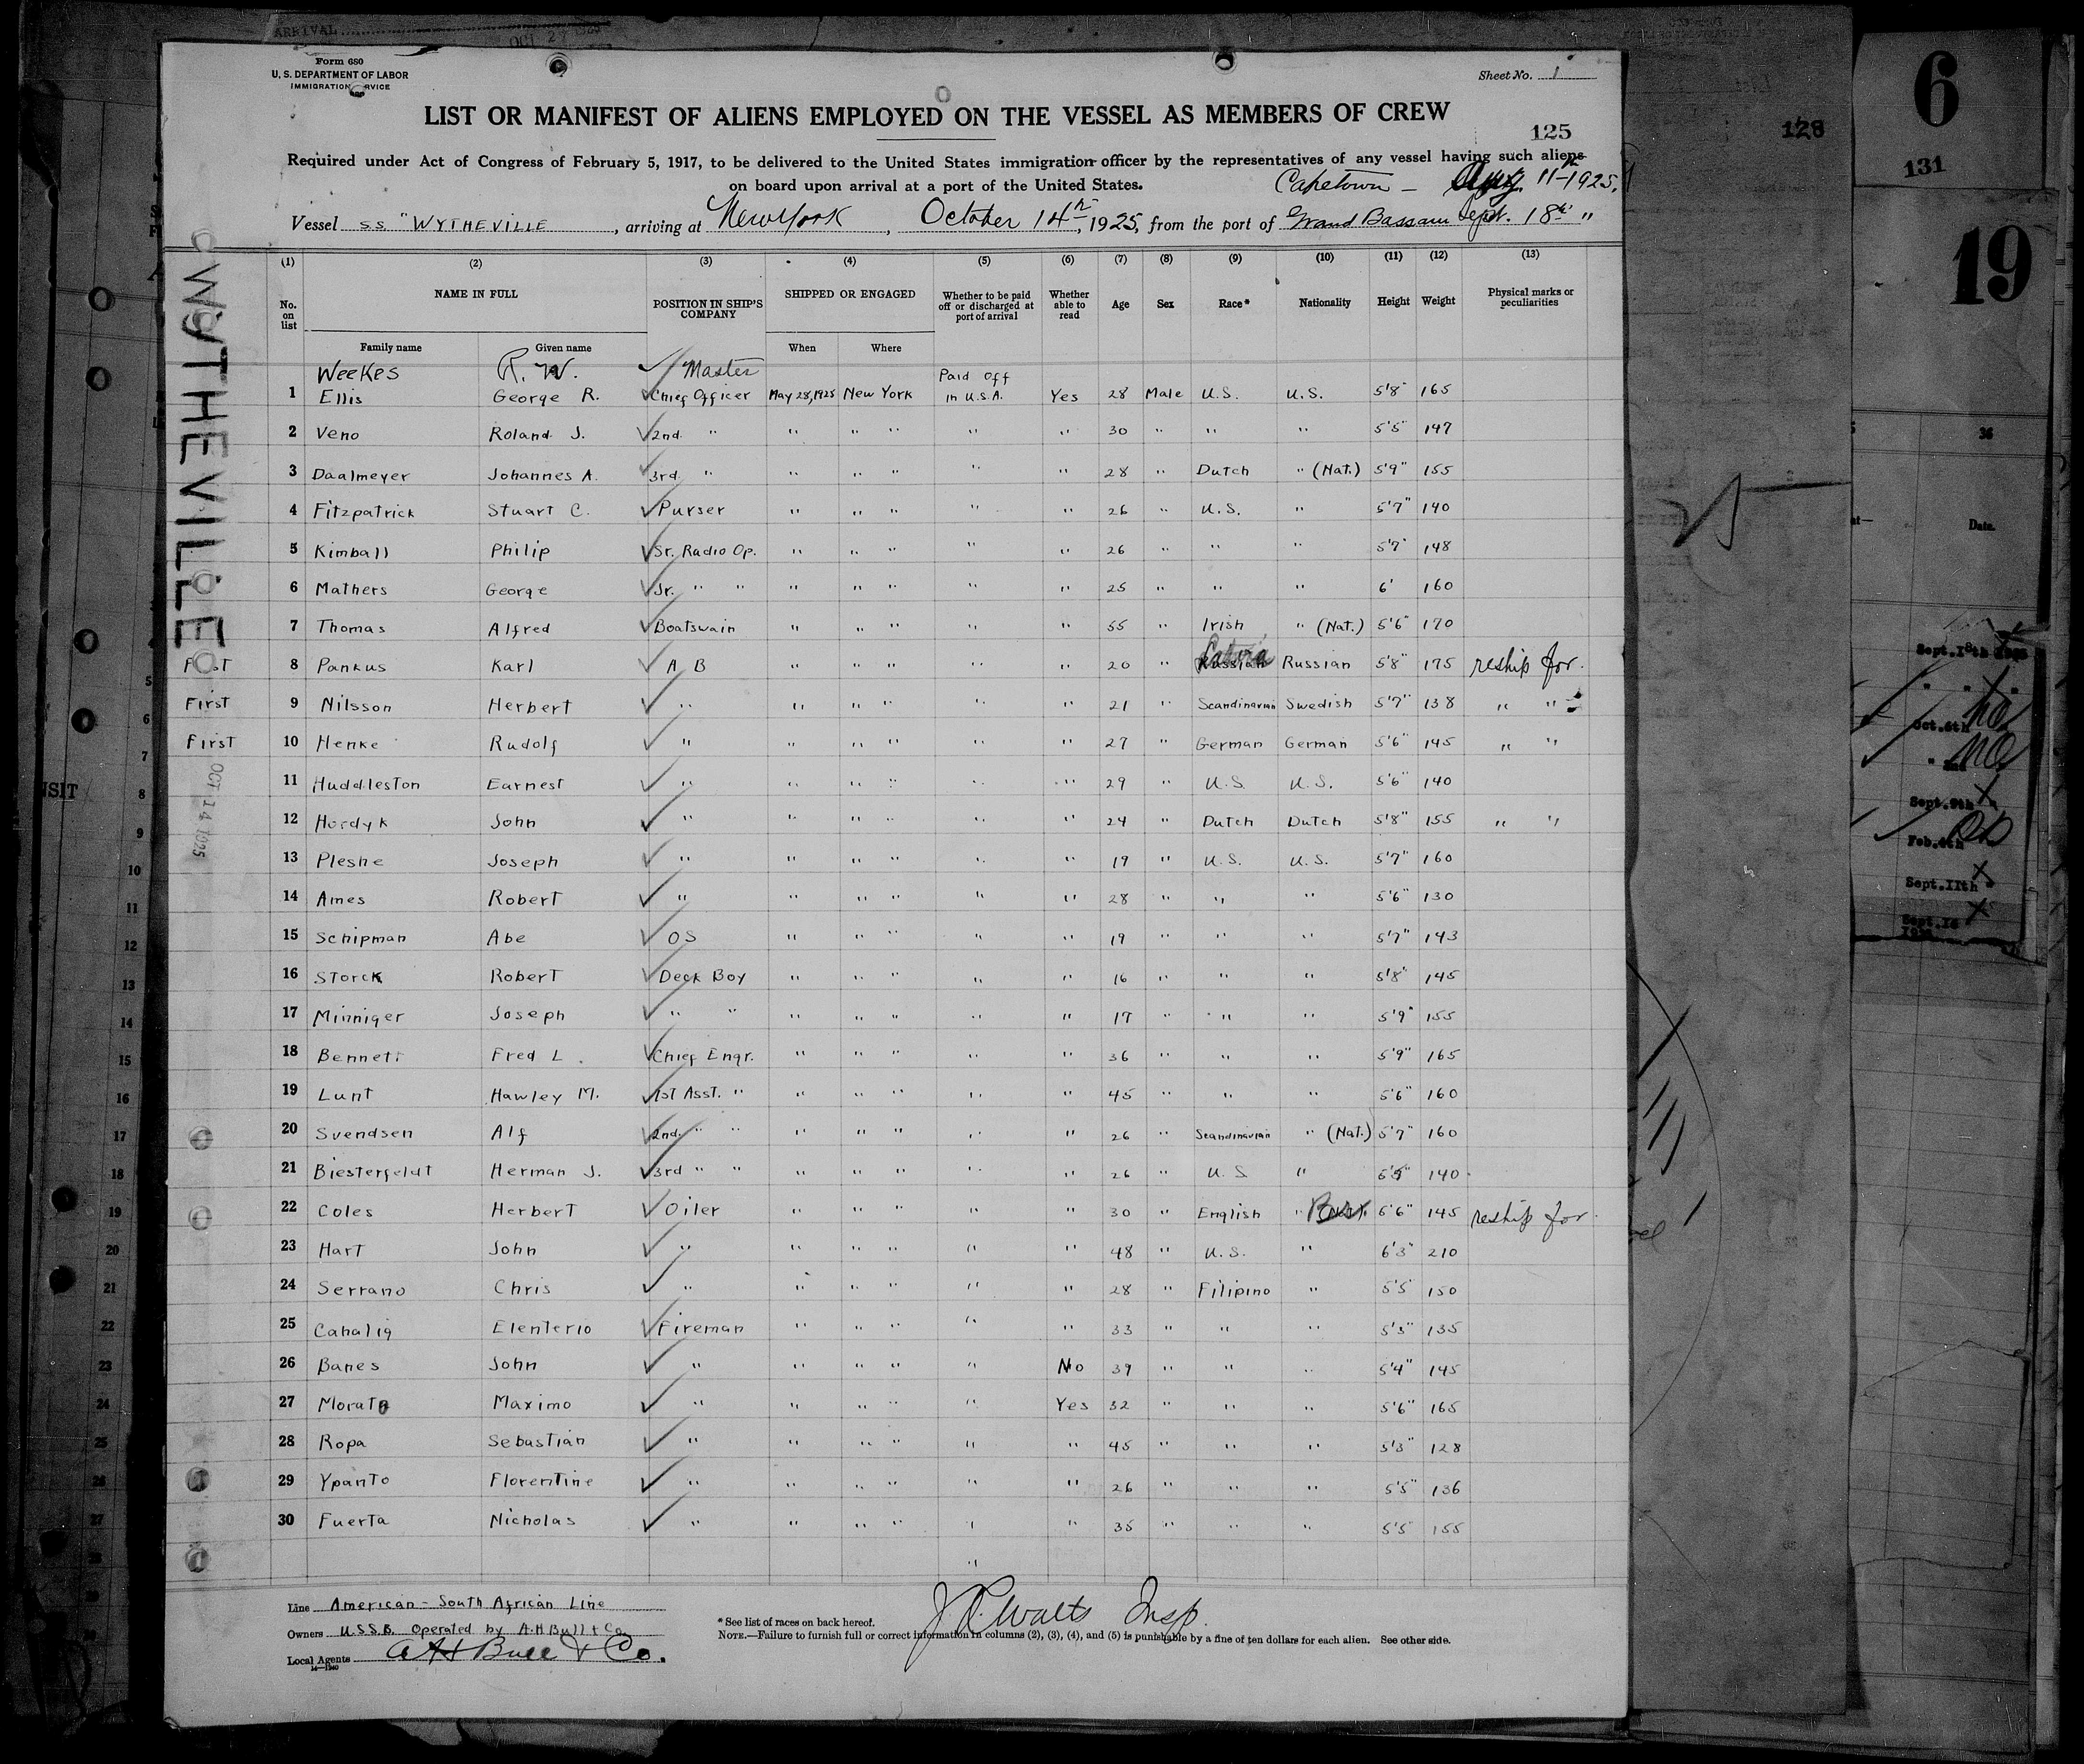 ARRIVAL
Form 680
U. S. DEPARTMENT OF LABOR
IMMIGRATION SERVICE
Sheet No. 1
LIST OR MANIFEST OF ALIENS EMPLOYED ON THE VESSEL AS MEMBERS OF CREW
125
Required under Act of Congress of February 5, 1917, to be delivered to the United States immigration officer by the representatives of any vessel having such aliens
on board upon arrival at a port of the United States. Capetown - Aug. 11th 1925.
Vessel S.S. "WYTHEVILLE, arriving at New York, October 14th, 1925, from the port of Grand Bassam Sept. 18th "
WYTHEVILLE
(1) (2) (3) (4) (5) (6) (7) (8) (9) (10) (11) (12) (13)
No. on list NAME IN FULL POSITION IN SHIP'S COMPANY SHIPPED OR ENGAGED Whether to be paid off or discharged at port of arrival Whether able to read Age Sex Race* Nationality Height Weight Physical marks or peculiarities
Family name Given name When Where
Weekes R. W. Master
1 Ellis George R. Chief Officer May 28, 1925 New York Paid Off in U.S.A. Yes 28 Male U.S. U.S. 5'8" 165
2 Veno Roland J. 2nd " " " " " " 30 " " " 5'5" 147
3 Daalmeyer Johannes A. 3rd " " " " " " 28 " Dutch " (Nat.) 5'9" 155
4 Fitzpatrick Stuart C. Purser " " " " " 26 " U.S. " 5'7" 140
5 Kimball Philip Sr. Radio Op. " " " " " 26 " " " 5'7" 148
6 Mathers George Jr. " " " " " " " 25 " " " 6' 160
7 Thomas Alfred Boatswain " " " " " 55 " Irish " (Nat.) 5'6" 170
First 8 Pankus Karl A B " " " " " 20 " Russian Latvia Russian 5'8" 175 reship for.
First 9 Nilsson Herbert " " " " " " 21 " Scandinavian Swedish 5'7" 138 " "
First 10 Henke Rudolf " " " " " " 27 " German German 5'6" 145 " "
11 Huddleston Earnest " " " " " " 29 " U.S. U.S. 5'6" 140
12 Hordyk John " " " " " " 24 " Dutch Dutch 5'8" 155 " "
13 Pleshe Joseph " " " " " " 19 " U.S. U.S. 5'7" 160
14 Ames Robert " " " " " " 28 " " " 5'6" 130
15 Schipman Abe OS " " " " " 19 " " " 5'7" 143
16 Storck Robert Deck Boy " " " " " 16 " " " 5'8" 145
17 Minniger Joseph " " " " " " " 17 " " " 5'9" 155
18 Bennett Fred L. Chief Engr. " " " " " 36 " " " 5'9" 165
19 Lunt Hawley M. 1st Asst. " " " " " " 45 " " " 5'6" 160
20 Svendsen Alf 2nd " " " " " " " 26 " Scandinavian " (Nat.) 5'7" 160
21 Biesterfeldt Herman J. 3rd " " " " " " " 26 " U.S. " 140
22 Coles Herbert Oiler " " " " " 30 " English " Brit. 5'6" 145 reship for.
23 Hart John " " " " " " 48 " U.S. " 6'3" 210
24 Serrano Chris " " " " " " 28 " Filipino " 5'5" 150
25 Cahalig Elenterio Fireman " " " " " 33 " " " 5'3" 135
26 Banes John " " " " " No 39 " " " 5'4" 145
27 Morato Maximo " " " " " Yes 32 " " " 5'6" 165
28 Ropa Sebastian " " " " " " 45 " " " 5'3" 128
29 Ypanto Florentine " " " " " " 26 " " " 5'5" 136
30 Fuerta Nicholas " " " " " " 35 " " " 5'5" 155
OCT 14 1925
Line American - South African Line
Owners U.S.S.B. Operated by A.H Bull & Co.
Local Agents A H Bull & Co.
14—1240
* See list of races on back hereof.
J.C. Watts Insp.
NOTE.—Failure to furnish full or correct information in columns (2), (3), (4), and (5) is punishable by a fine of ten dollars for each alien. See other side.
128
6
131
19
36
Date.
Sept.18th
Oct.6th no
no
Sept.9th
Feb.4th
Sept.11th